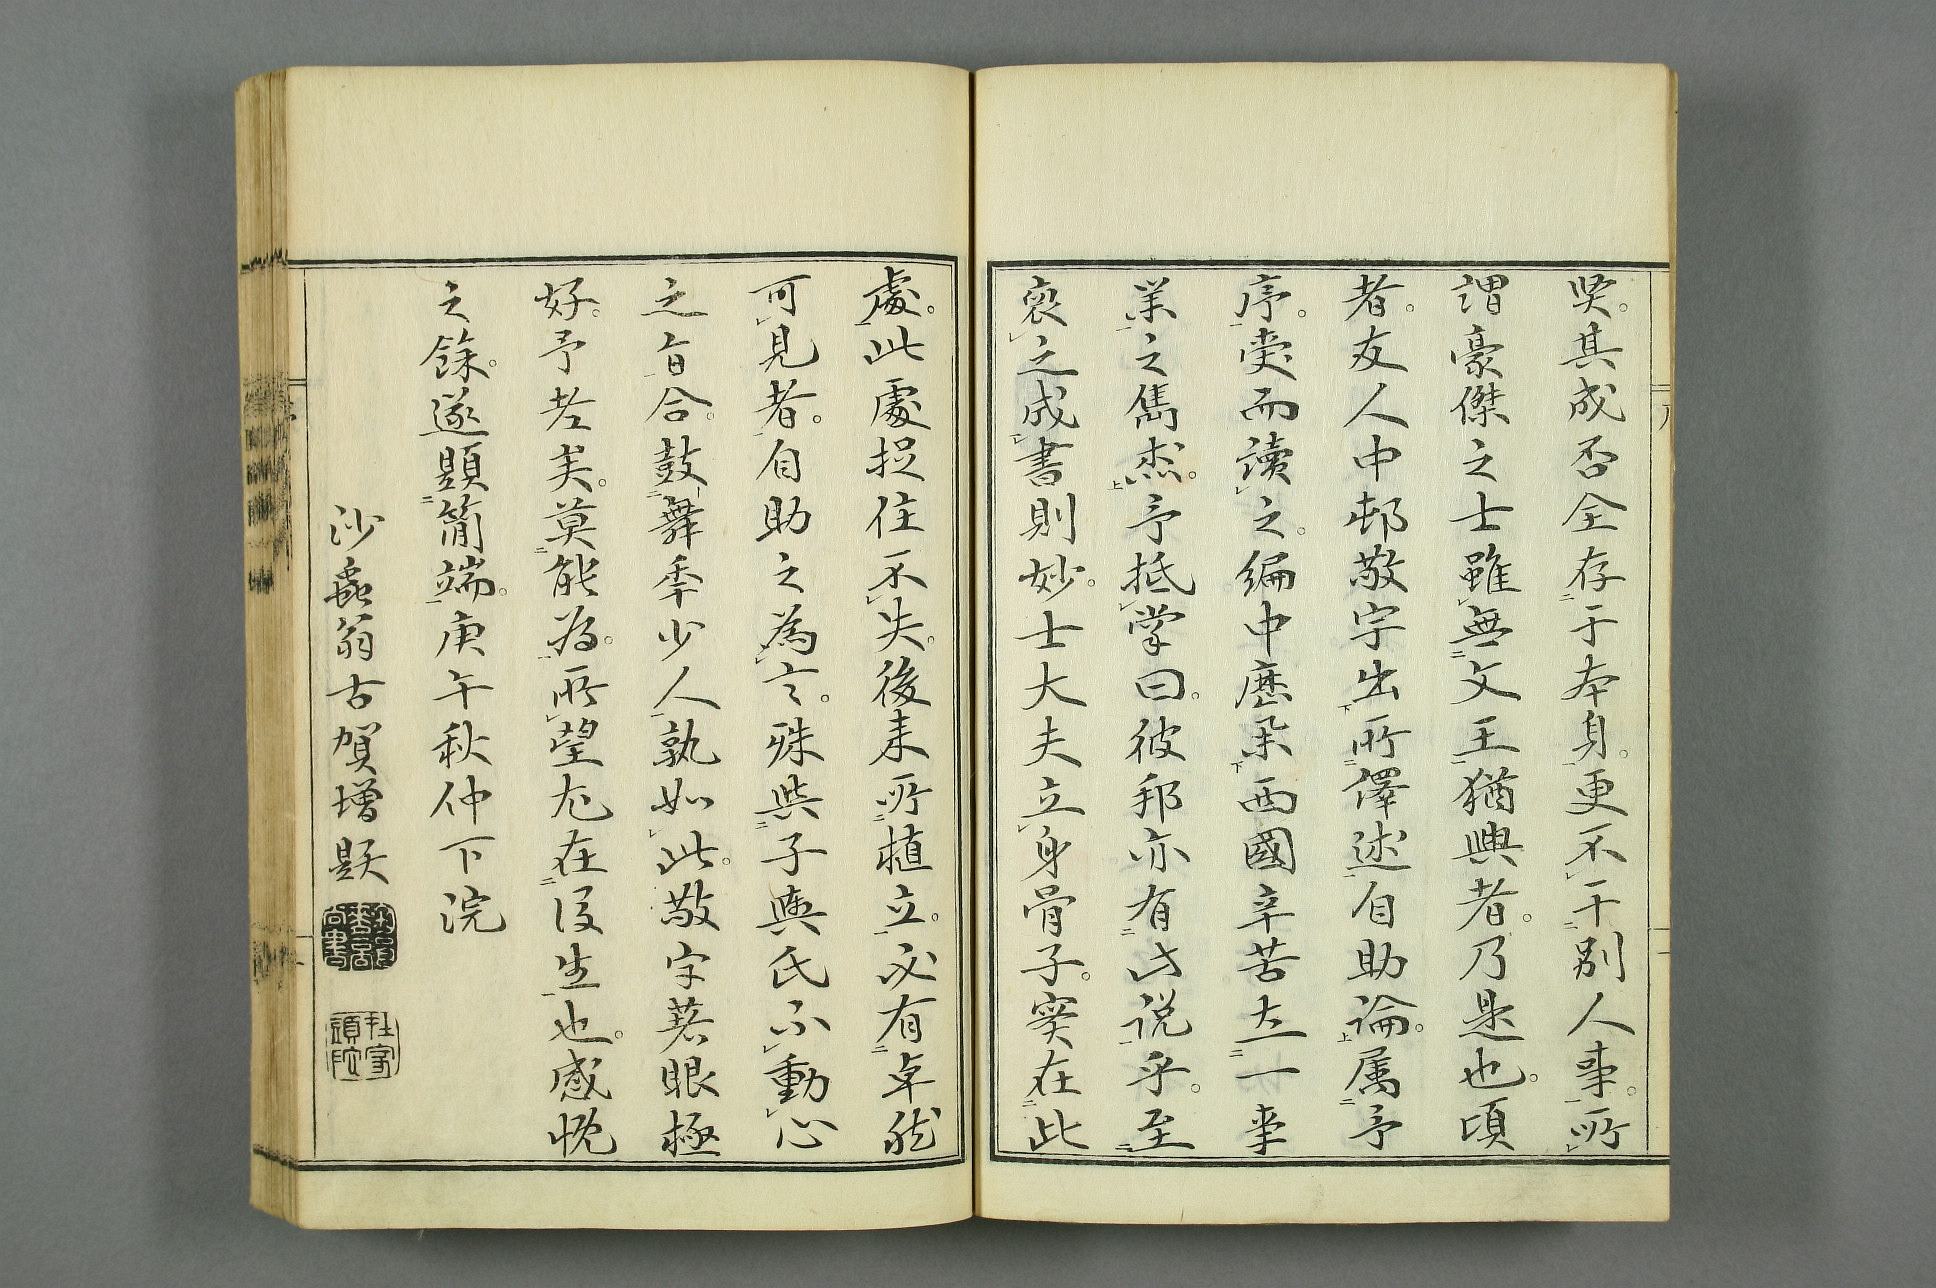 其成否全存于本身。更不干別人事。所
謂豪傑之士雖無文王猶興者。乃是也。頃
者。友人中邨敬宇出所譯述自助論。属予
序。受而讀之。編中歴擧西國辛苦立一事
業之雋杰。予抵掌曰。彼邦亦有此説乎。至
裒之成書則妙。士大夫立身骨子。実在此
處。此處捉住不失。後来所植立。必有卓然
可見者。自助之為言。殊與子輿氏不動心
之旨合。鼓舞年少人孰如此。敬宇著眼極
好。予老矣。莫能為。所望尤在後生也。感愧
之餘。遂題簡端。庚午秋仲下浣
沙蟲翁古賀增題